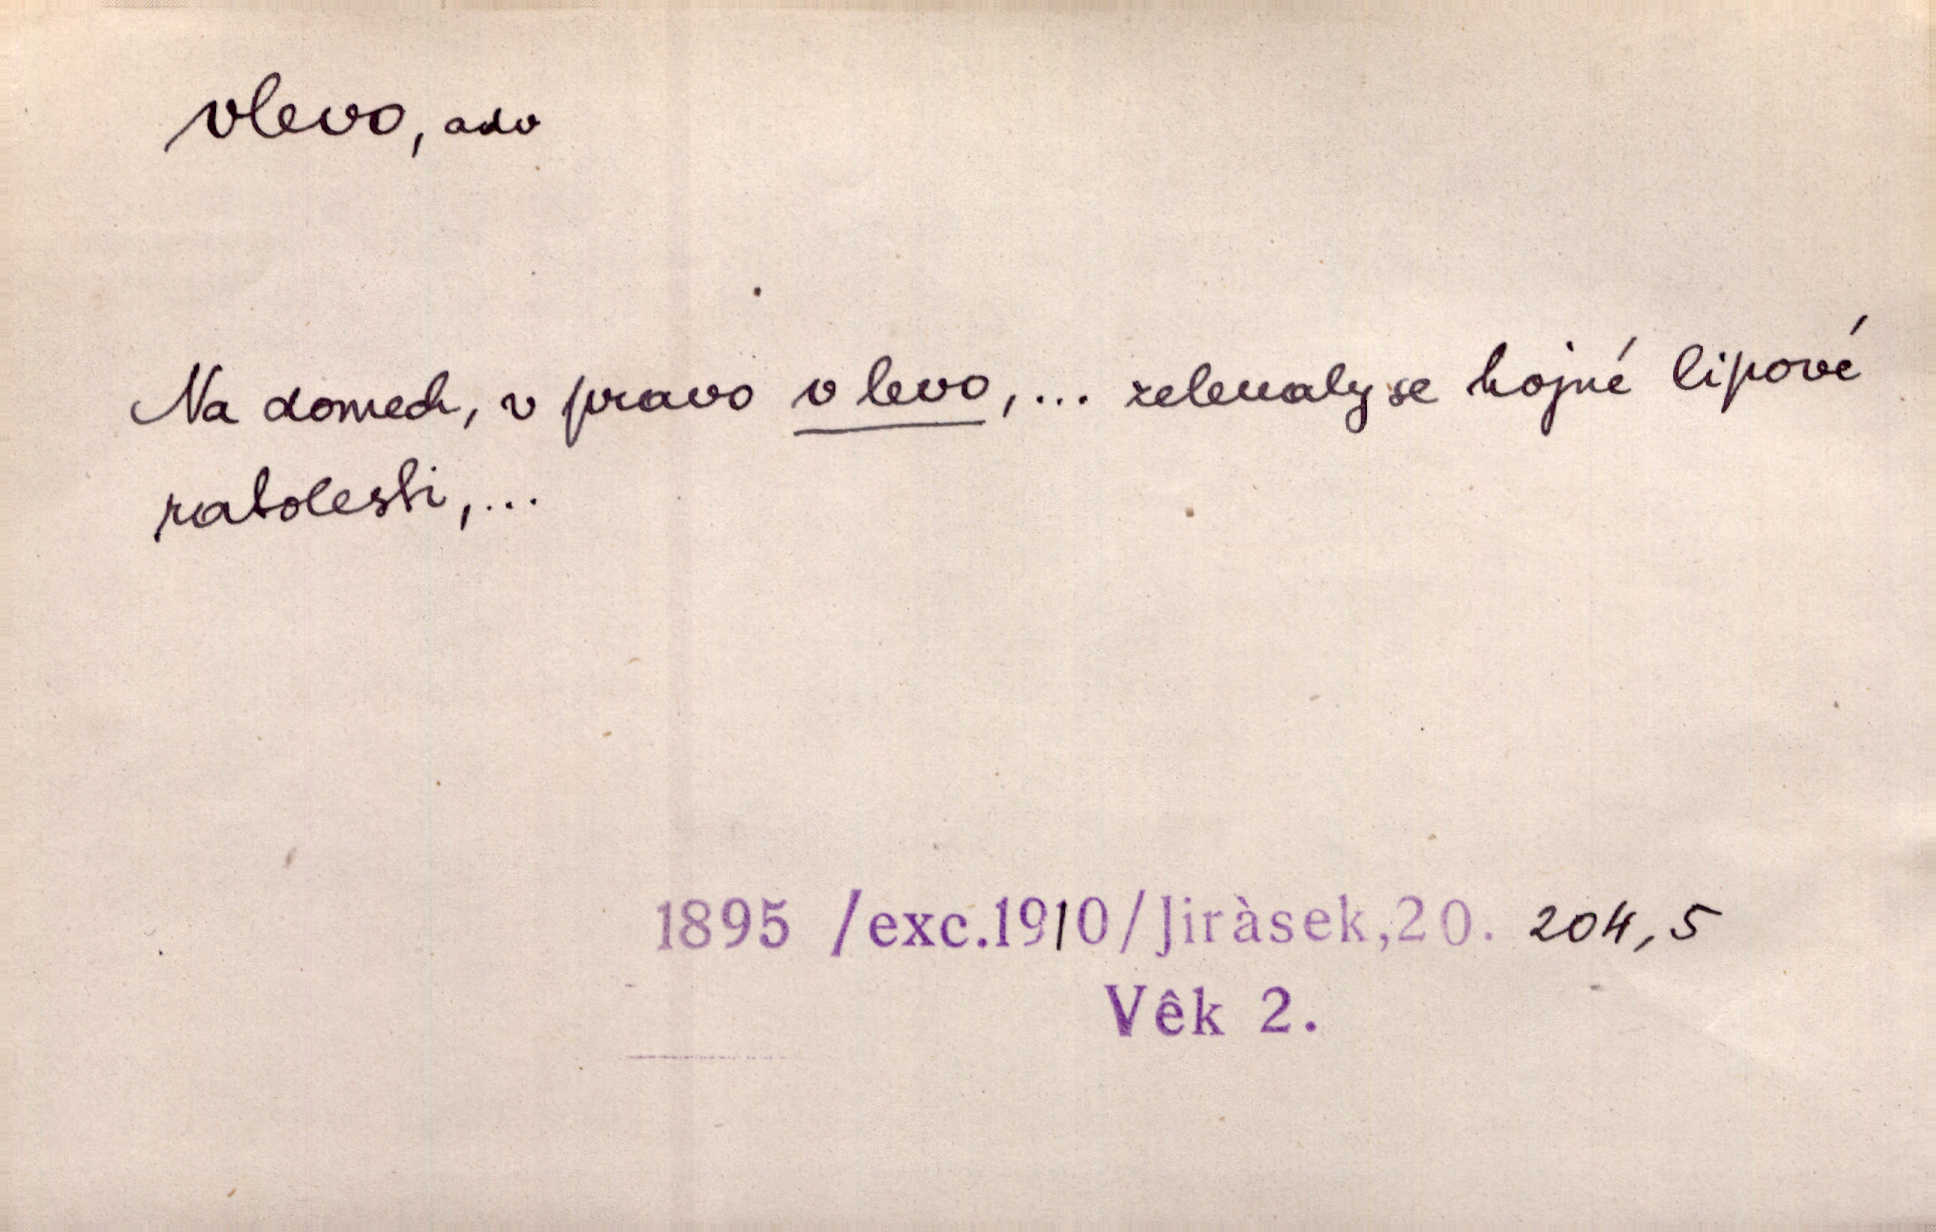 vlevo, adv
Na domech, v pravo v levo, ... zelenaly se hojné lipové
ratolesti, ...
1895 /exc.1910/Jiràsek,20. 204,5
Vêk 2.